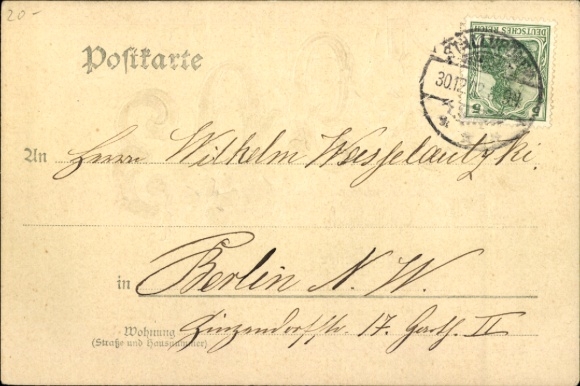 20.-
Postkarte
DEUTSCHES REICH
5 5
30.12.
An Herrn Wilhelm
in Berlin N. W.
Wohnung Zinzendorfstr. 17. Garth. II
(Straße und Hausnummer)